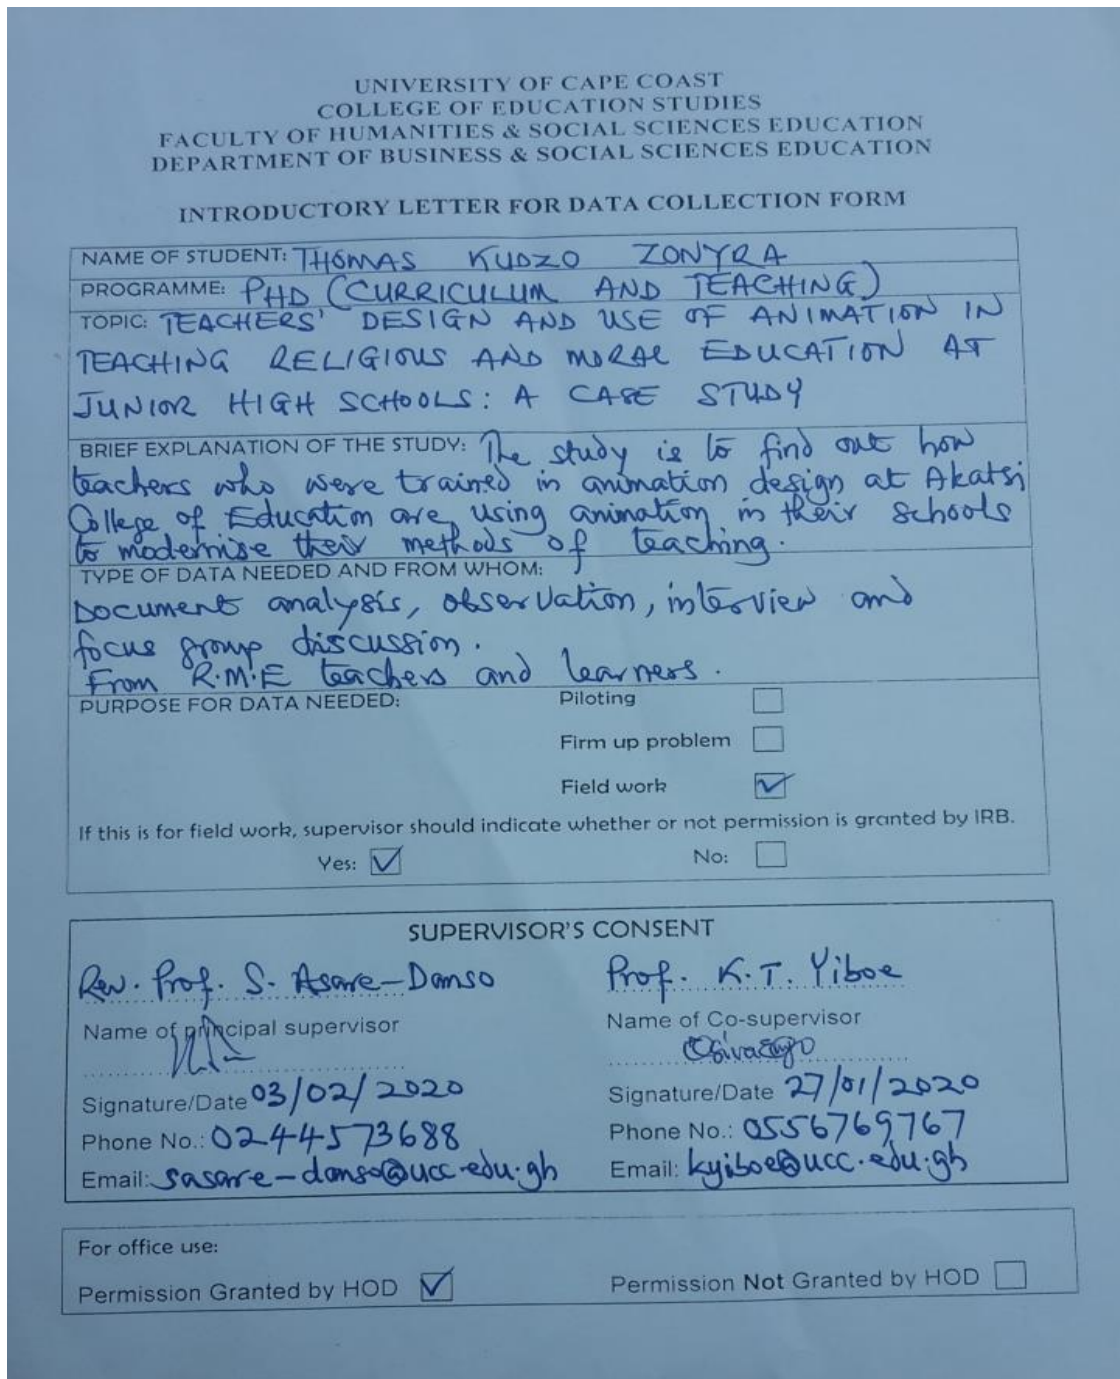 UNIVERSITY OF CAPE COAST
COLLEGE OF EDUCATION STUDIES
FACULTY OF HUMANITIES & SOCIAL SCIENCES EDUCATION
DEPARTMENT OF BUSINESS & SOCIAL SCIENCES EDUCATION
INTRODUCTORY LETTER FOR DATA COLLECTION FORM
NAME OF STUDENT: THOMAS KUDZO ZONYRA
PROGRAMME: PHD (CURRICULUM AND TEACHING)
TOPIC: TEACHERS' DESIGN AND USE OF ANIMATION IN
TEACHING RELIGIOUS AND MORAL EDUCATION AT
JUNIOR HIGH SCHOOLS: A CASE STUDY
BRIEF EXPLANATION OF THE STUDY: The study is to find out how
teachers who were trained in animation design at Akatsi
College of Education are using animation in their schools
to modernise their methods of teaching.
TYPE OF DATA NEEDED AND FROM WHOM:
Document analysis, observation, interview and
focus group discussion.
From R.M.E teachers and learners.
PURPOSE FOR DATA NEEDED: Piloting
Firm up problem
Field work
If this is for field work, supervisor should indicate whether or not permission is granted by IRB.
Yes: No:
SUPERVISOR'S CONSENT
Rev. Prof. S. Asare-Danso Prof. K.T. Yiboe
Name of principal supervisor Name of Co-supervisor
Signature/Date 03/02/2020 Signature/Date 27/01/2020
Phone No.: 0244573688 Phone No.: 0556769767
Email: sasare-danso@ucc.edu.gh Email: kyiboe@ucc.edu.gh
For office use:
Permission Granted by HOD Permission Not Granted by HOD